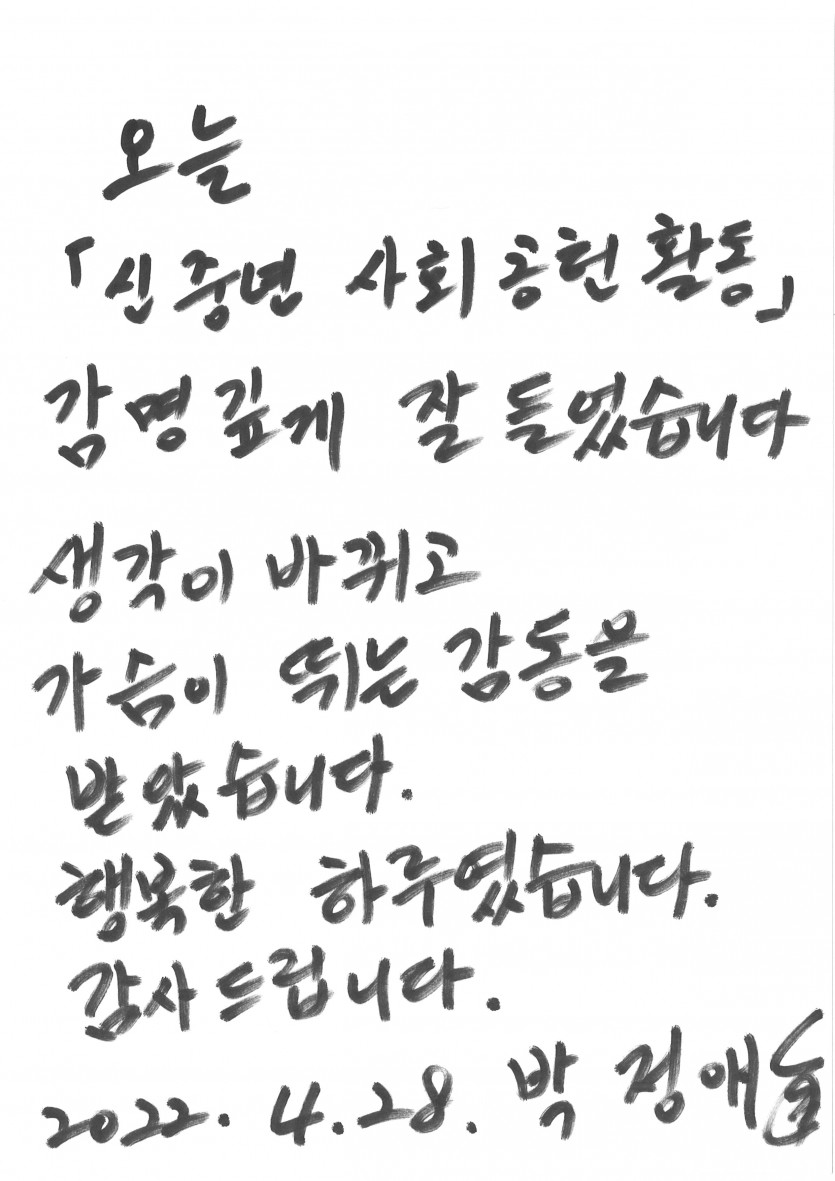 오늘
「신중년 사회공헌활동」
감명깊게 잘 들었습니다
생각이 바뀌고
가슴이 뛰는 감동을
받았습니다.
행복한 하루였습니다.
감사드립니다.
2022. 4. 28. 박 정애